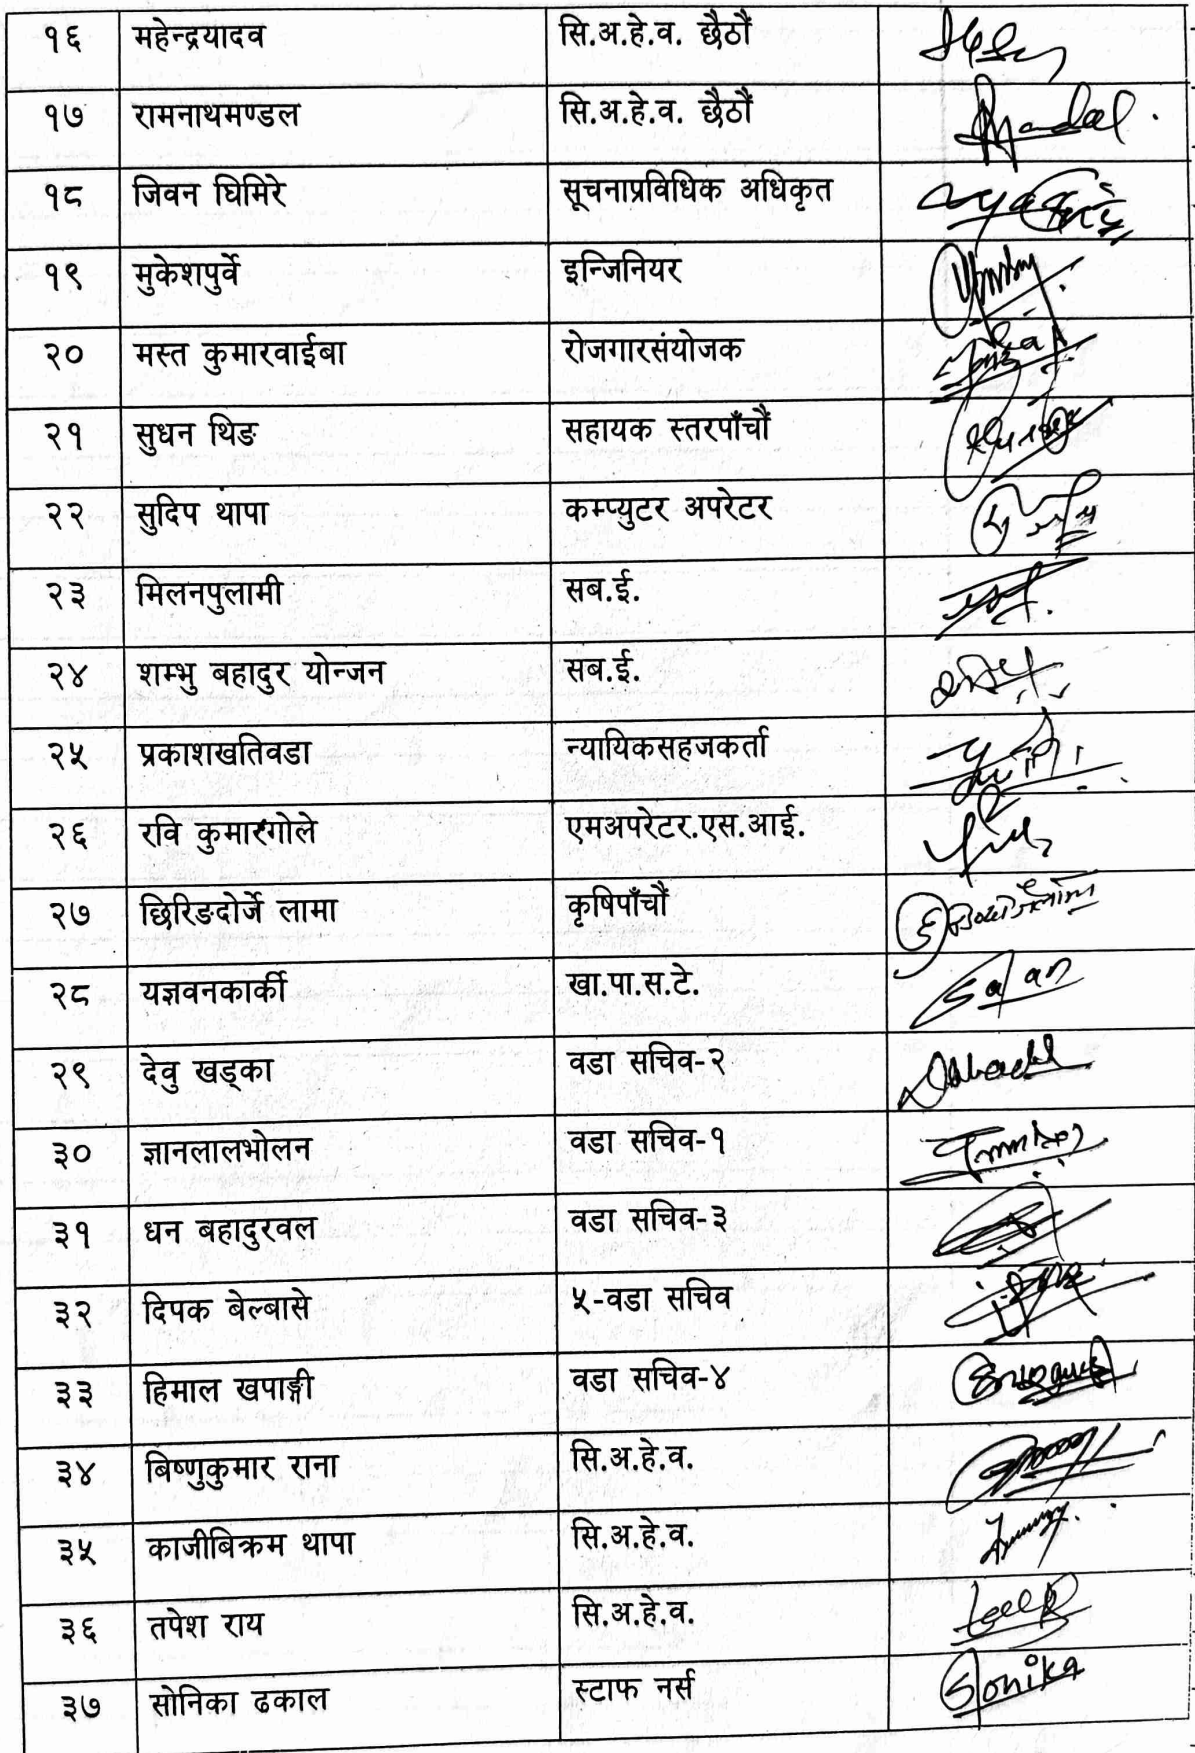 १६ महेन्द्रयादव सि.अ.हे.व. छैठौं
१७ रामनाथमण्डल सि.अ.हे.व. छैठौं Mandal.
१८ जिवन घिमिरे सूचनाप्रविधिक अधिकृत
१९ मुकेशपुर्वे इन्जिनियर
२० मस्त कुमारवाईबा रोजगारसंयोजक
२१ सुधन थिङ सहायक स्तरपाँचौं
२२ सुदिप थापा कम्प्युटर अपरेटर
२३ मिलनपुलामी सब.ई.
२४ शम्भु बहादुर योन्जन सब.ई.
२५ प्रकाशखतिवडा न्यायिकसहजकर्ता
२६ रवि कुमारगोले एमअपरेटर.एस.आई.
२७ छिरिङदोर्जे लामा कृषिपाँचौं
२८ यज्ञवनकार्की खा.पा.स.टे.
२९ देवु खड्का वडा सचिव-२
३० ज्ञानलालभोलन वडा सचिव-१
३१ धन बहादुरवल वडा सचिव-३
३२ दिपक बेल्बासे ५-वडा सचिव
३३ हिमाल खपाङ्गी वडा सचिव-४
३४ बिष्णुकुमार राना सि.अ.हे.व.
३५ काजीबिक्रम थापा सि.अ.हे.व.
३६ तपेश राय सि.अ.हे.व.
३७ सोनिका ढकाल स्टाफ नर्स Sonika